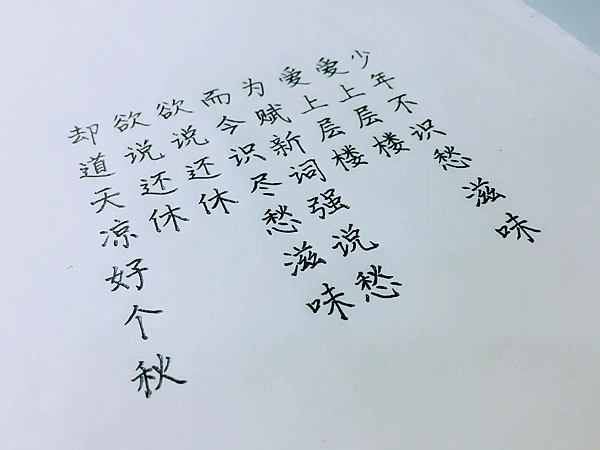 少年不识愁滋味
爱上层楼
爱上层楼
为赋新词强说愁
而今识尽愁滋味
欲说还休
欲说还休
却道天凉好个秋